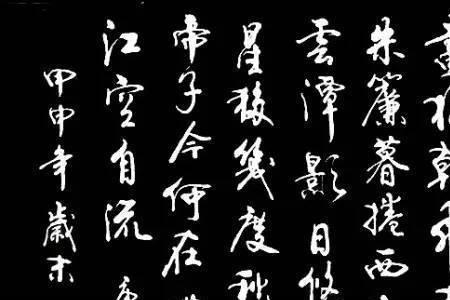 朱簾暮捲西
雲潭影日悠
星移幾度秋
帝子今何在
江空自流
甲申年歲末